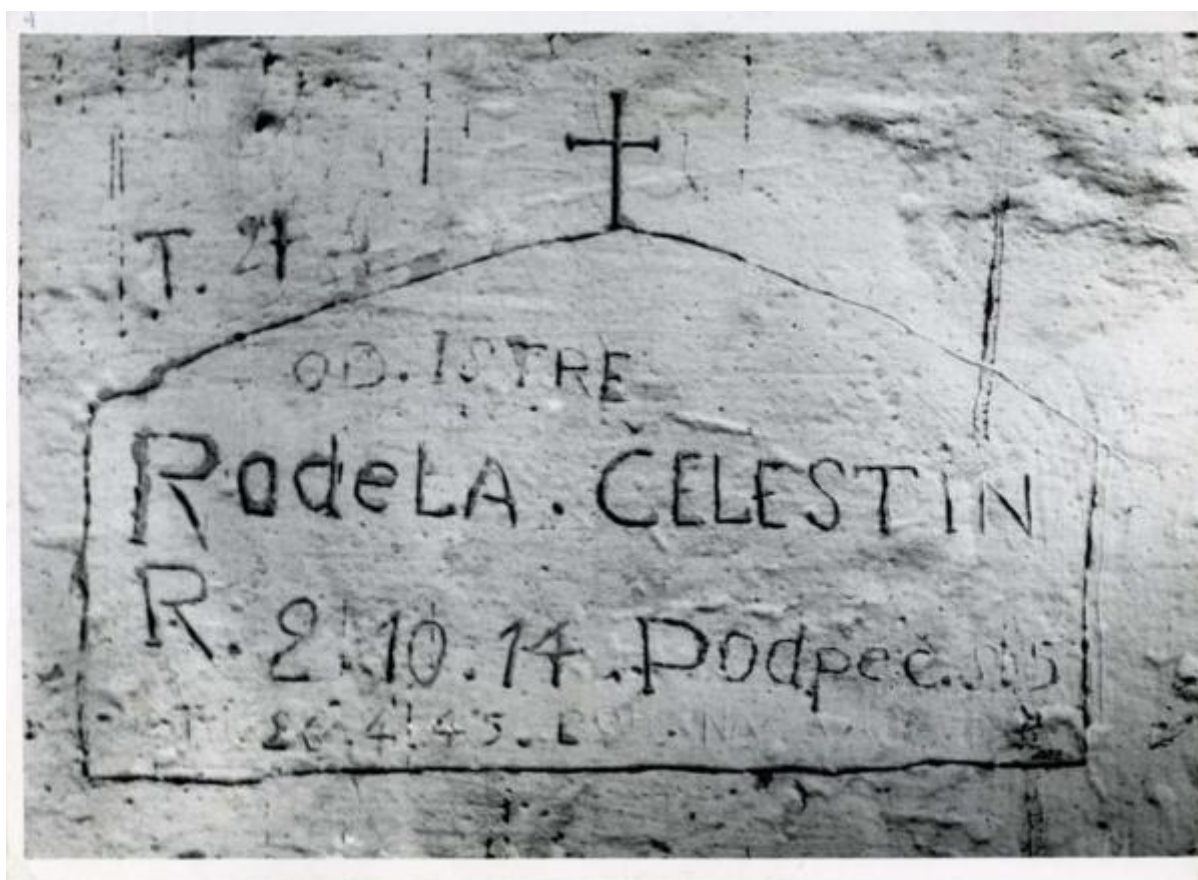 T. 21
OD. ISTRE
RodeLA. CELESTIN
R. 2.10.14. Podpeč.
26.4.45.